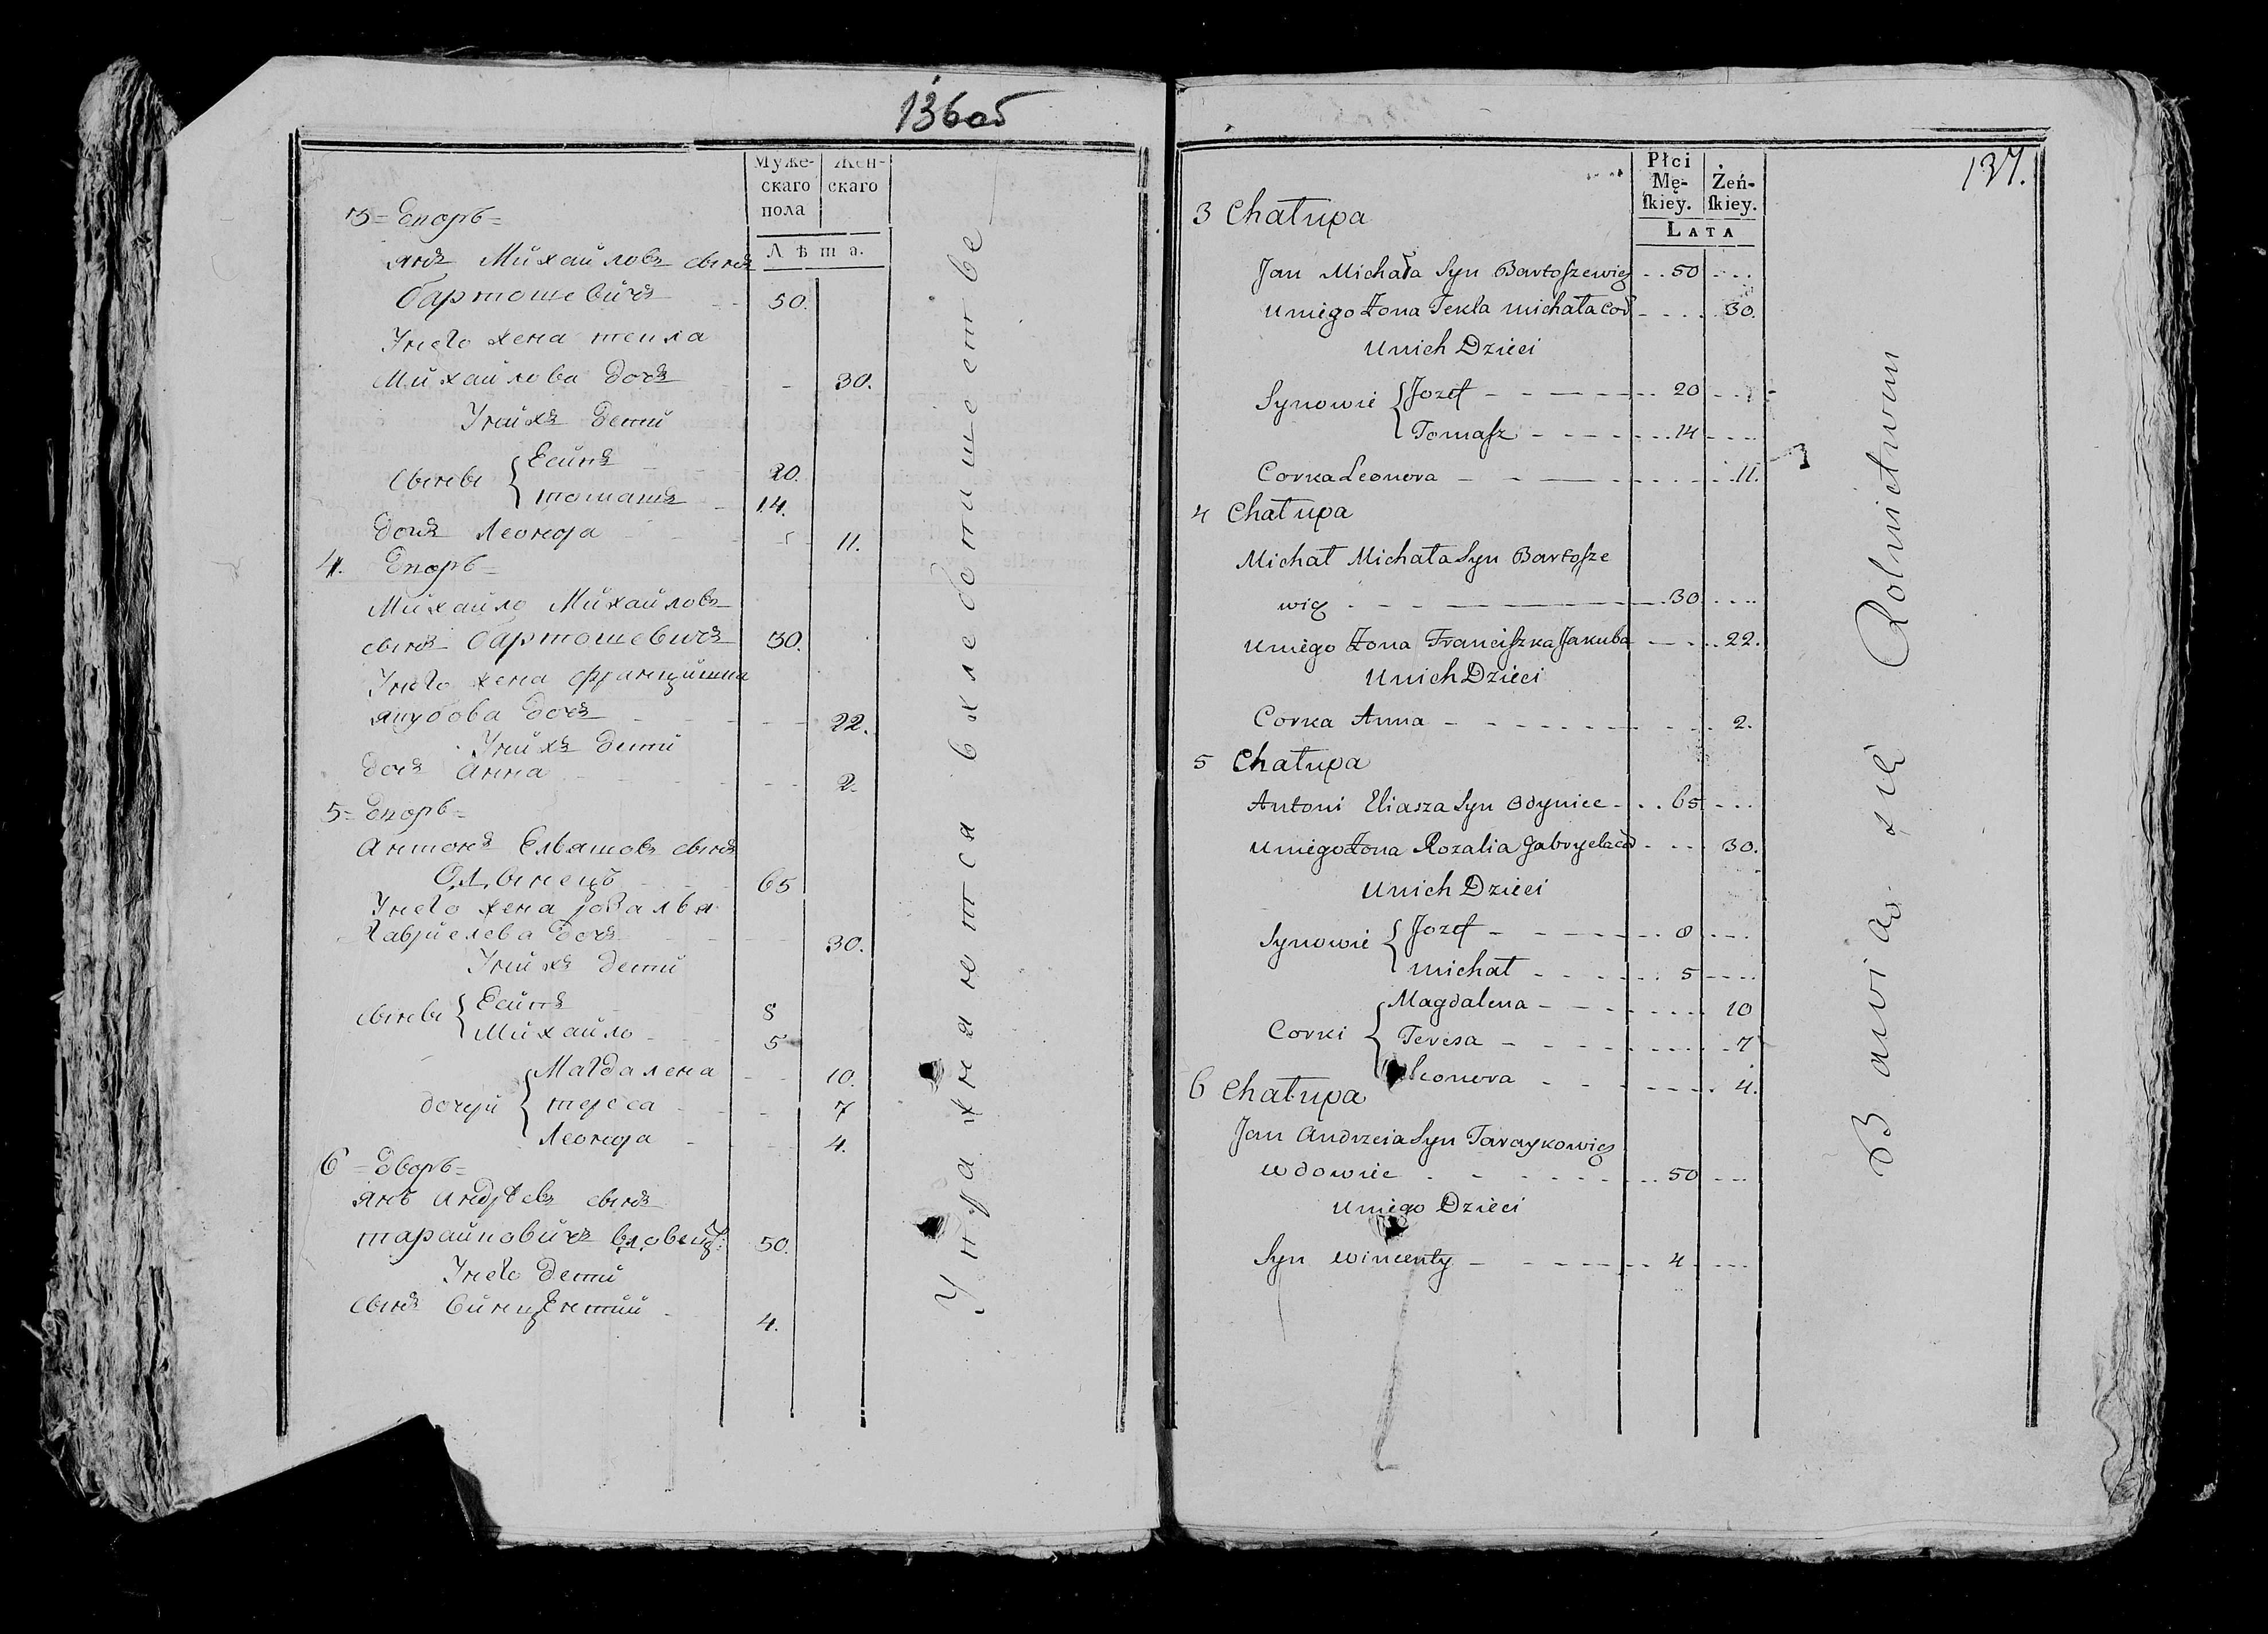 136об
Муже-
скаго
пола
Жен-
скаго
Лѣта.
3 = Дворъ =
Янъ Михайловъ сынъ
Бартошевичъ 50.
Унего жена текла
Михайлова дочъ 30.
Унихъ дети
сыновья
томашъ 14.
20.
дочъ Леонора 11.
4. Дворъ =
Михайло Михайловъ
сынъ Бартошевичъ 30.
Унего жена францишка
якубова дочъ 22.
Унихъ дети
дочъ Анна 2.
5 = Дворъ =
Антонъ Ельяшовъ сынъ
65
Унего жена розалья
Гавриелева дочъ 30.
Унихъ дети
8
Михайло 5
дочери Магдалена 10.
тереса 7
Леонора 4.
6 = Дворъ =
янъ Андреевъ сынъ
тарайковичъ вдовецъ 50.
Унего дети
сынъ Винцентий 4.
Упражняются вхлебопашестве
137.
Płci
Mę-
ſkiey.
Żeń-
ſkiey.
LATA
3 Chałupa
Jan Michała Syn Bartoszewicz 50
Uniego Żona Tekla Michała Cor 30.
Unich Dzieci
Synowie Jozef 20
Tomasz 14
Corka Leonora 11.
4 Chałupa
Michał Michała Syn Bartosze
wicz 30
Uniego Żona Franciszka Jakuba 22.
Unich Dzieci
Corka Anna 2.
5 Chałupa
Antoni Eliasza Syn Odyniec 65
Uniego Żona Rozalia Gabryela Cor 30.
Unich Dzieci
Synowie Jozef 8
Michał 5
Corki Magdalena 10
Teresa 7
Leonora 4.
6 Chałupa
Jan Andrzeia Syn Taraykowicz
wdowiec 50
Uniego Dzieci
Syn Wincenty 4
Bawią się Rolnictwem